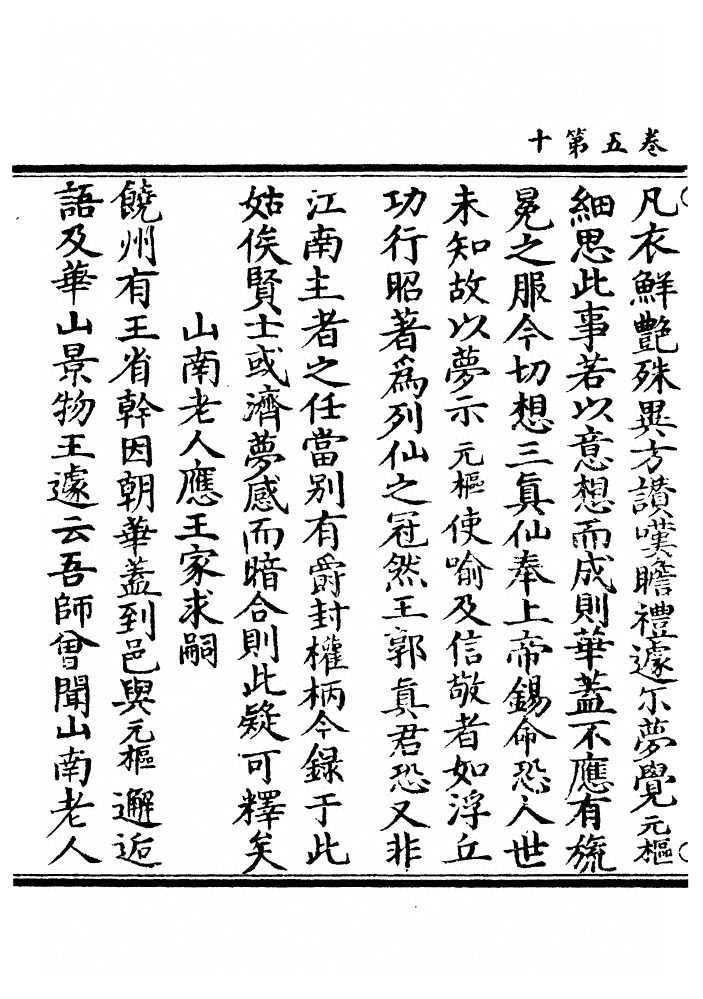 卷五第十
凡衣鮮艷殊異方讃嘆瞻禮遽尓夢覺元樞
細思此事若以意想而成則華蓋不應有旒
冕之服今切想三眞仙奉上帝錫命恐人世
未知故以夢示元樞使喻及信敬者如浮丘
功行昭著爲列仙之冠然王郭眞君恐又非
江南主者之任當别有爵封權柄今録于此
姑俟賢士或濟夢感而暗合則此疑可釋矣
山南老人應王家求嗣
饒州有王省幹因朝華蓋到邑與元樞邂逅
語及華山景物王遽云吾師曾聞山南老人